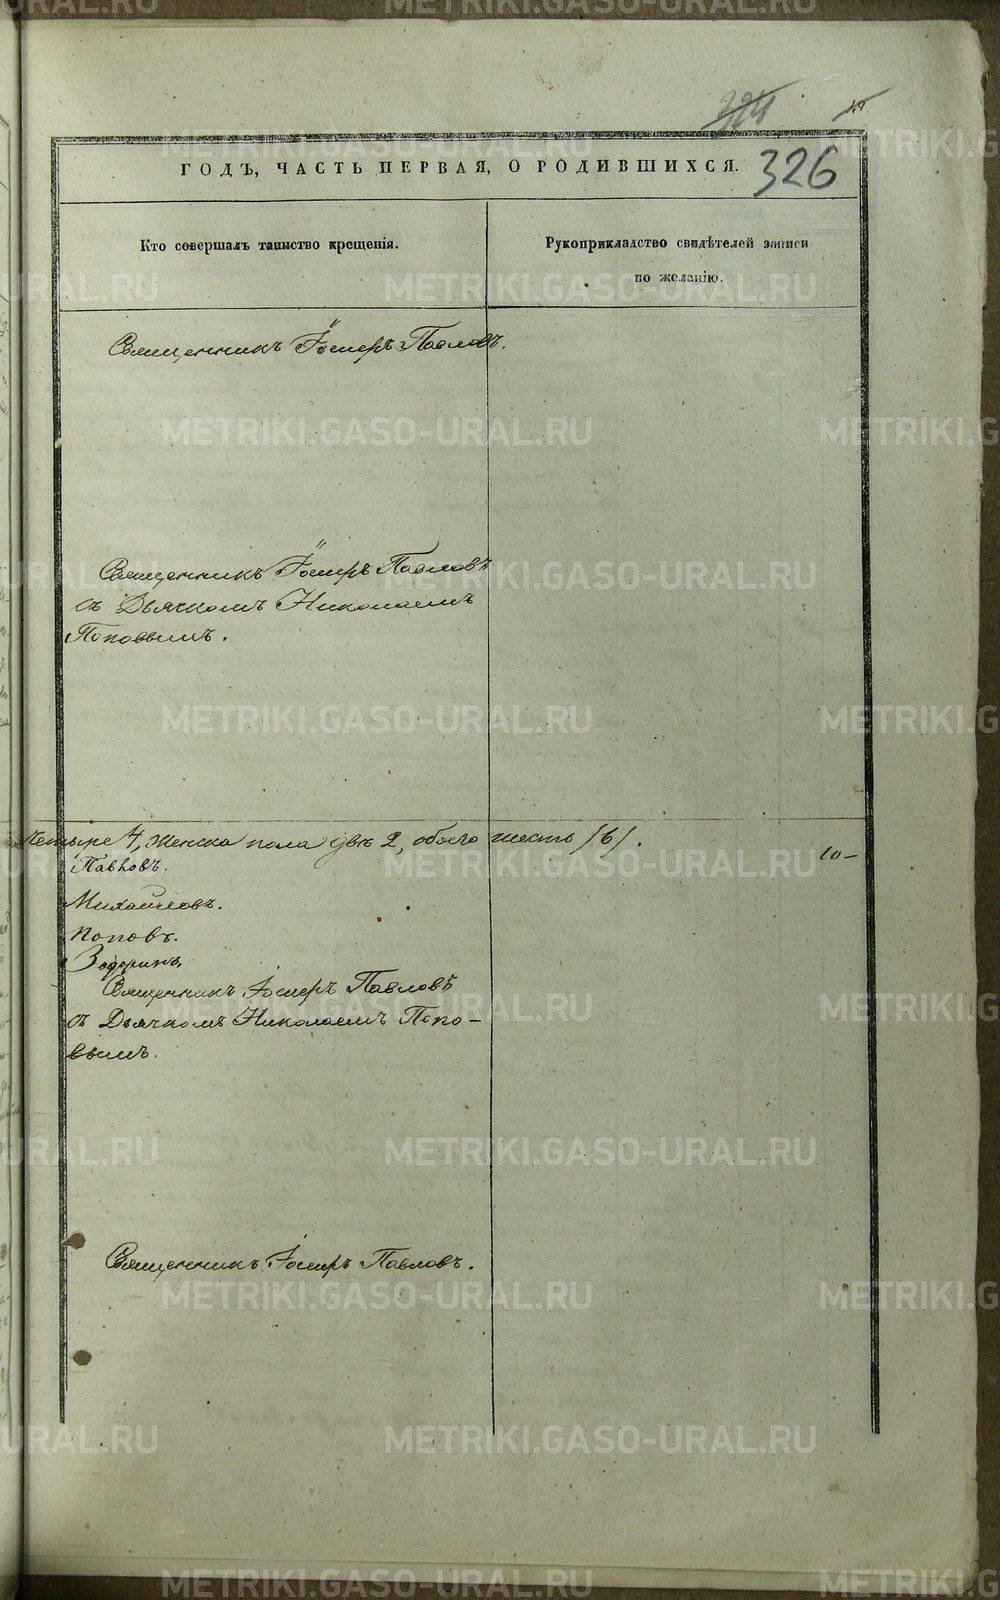 324
326
ГОДЪ, ЧАСТЬ ПЕРВАЯ, О РОДИВШИХСЯ.
Кто совершалъ таинство крещенія.
Рукоприкладство свидѣтелей записи
по желанію.
Священникъ Іосифъ Павловъ.
Священникъ Іосифъ Павловъ
съ Дьячкомъ Николаемъ
Поповымъ.
Четыре 4, женска пола двѣ 2, обоего шесть /6/.
Павловъ.
10–
Михайловъ.
Поповъ.
Священникъ Іосифъ Павловъ
съ Дьячкомъ Николаемъ Попо-
вымъ.
Священникъ Іосифъ Павловъ.
METRIKI.GASO-URAL.RU